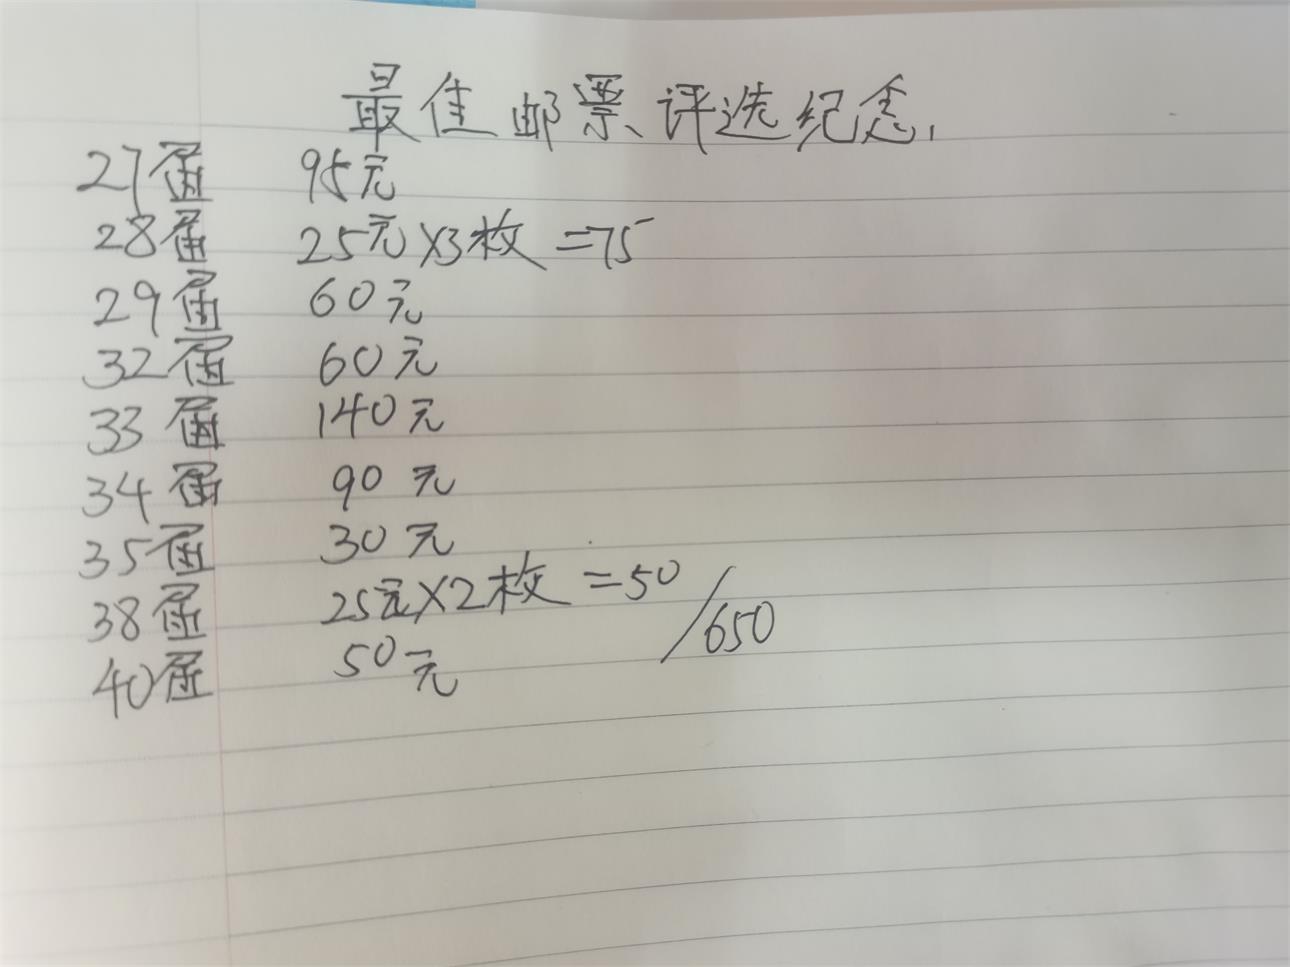 最佳邮票评选纪念.
27届 95元
28届 25元×3枚=75
29届 60元
32届 60元
33届 140元
34届 90元
35届 30元
38届 25元×2枚=50
40届 50元 /650